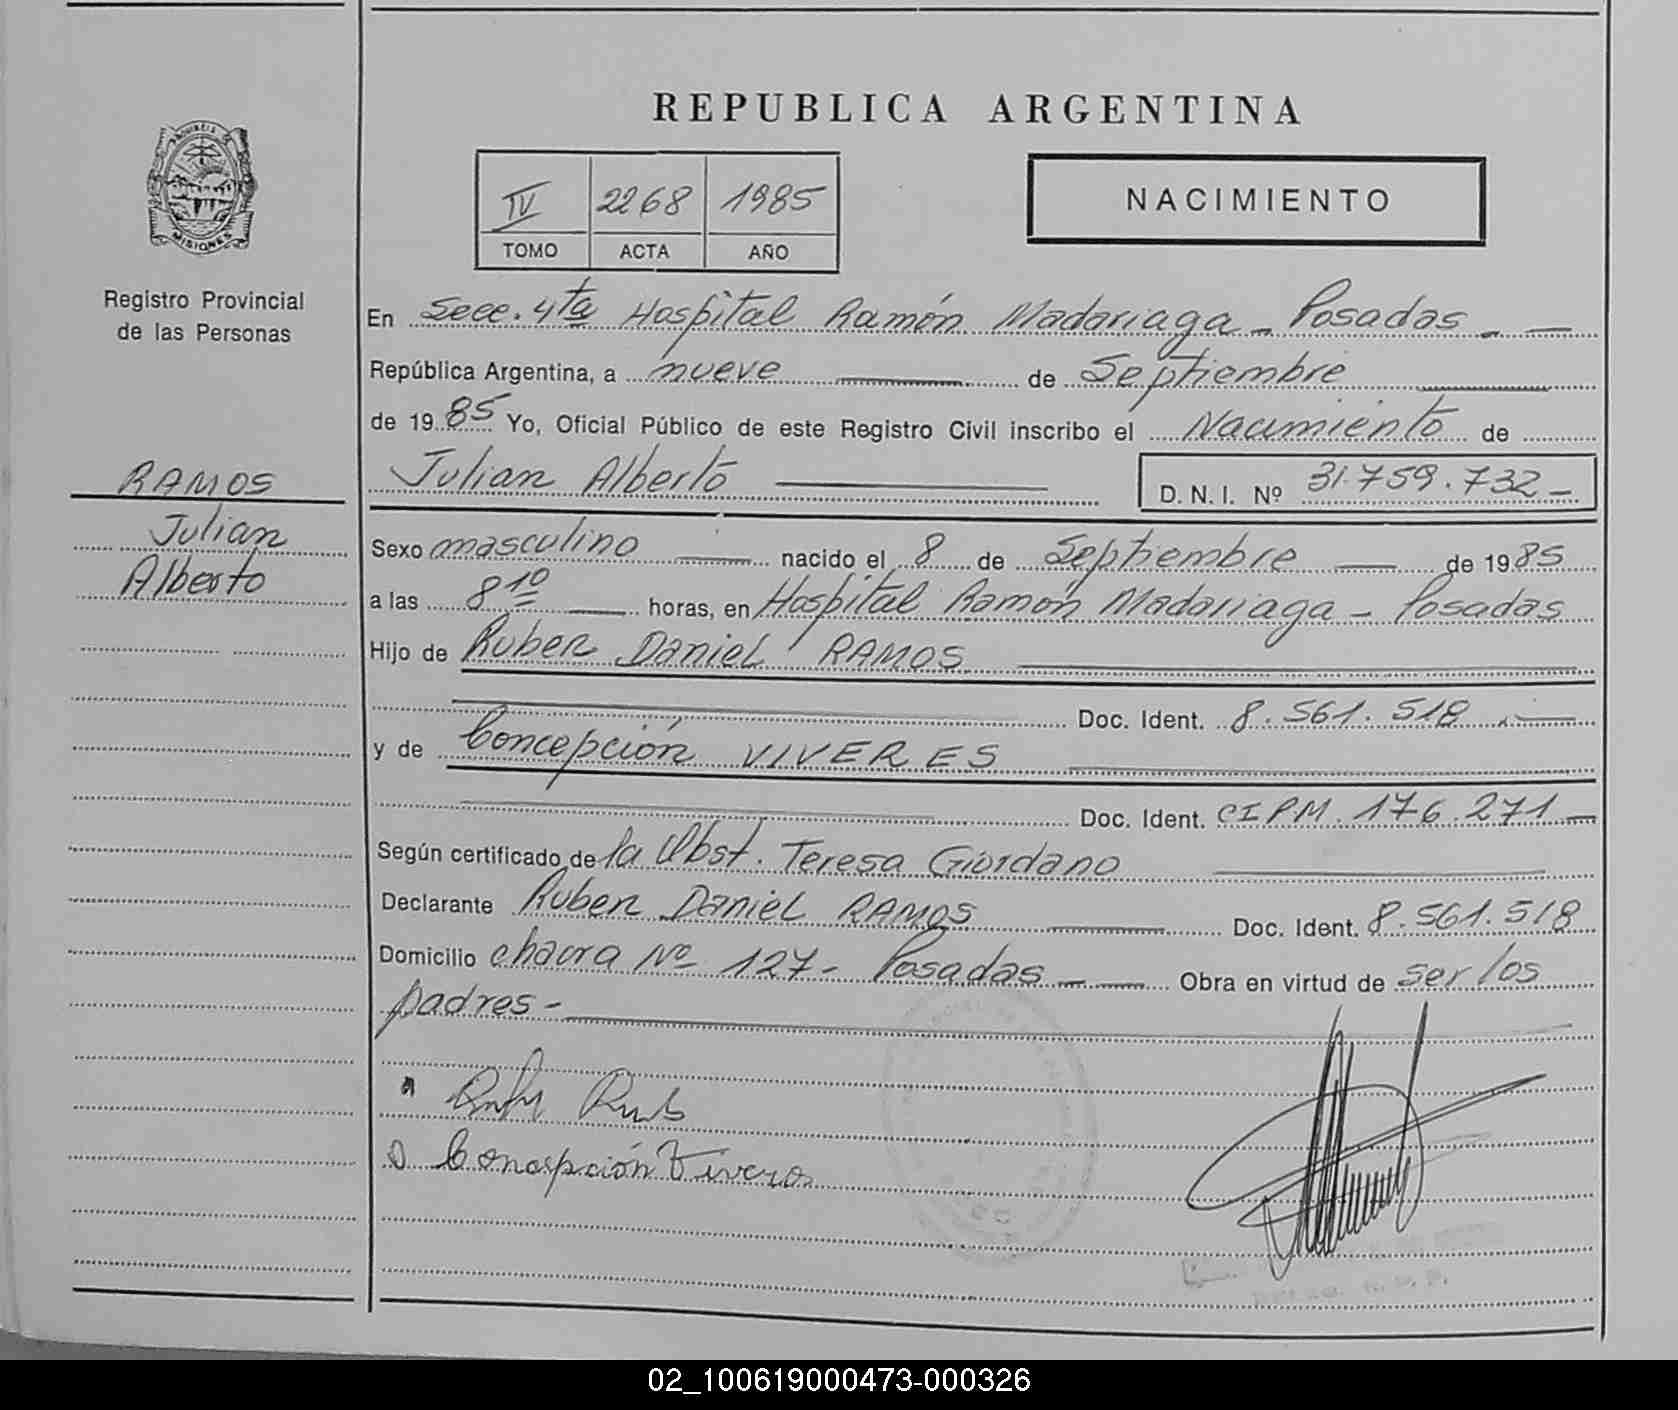 REPUBLICA ARGENTINA
IV 2268 1985
TOMO ACTA AÑO
NACIMIENTO
MISIONES
Registro Provincial
de las Personas
RAMOS
Julian
Alberto
En Secc. 4ta Hospital Ramón Madariaga - Posadas - —
República Argentina, a nueve — de Septiembre —
de 1985 Yo, Oficial Público de este Registro Civil inscribo el Nacimiento de
Julian Alberto — D. N. I. Nº 31.759.732 -
Sexo masculino — nacido el 8 de Septiembre — de 1985
a las 8 10 — horas, en Hospital Ramón Madariaga - Posadas
Hijo de Ruben Daniel RAMOS —
Doc. Ident. 8.561.518 . —
y de Concepción VIVERES —
Doc. Ident. CIPM. 176.271 —
Según certificado de la Obst. Teresa Giordano —
Declarante Ruben Daniel RAMOS — Doc. Ident. 8.561.518
Domicilio chacra Nº 127 - Posadas - — Obra en virtud de ser los
padres - —
Concepción Viveros
02_100619000473-000326